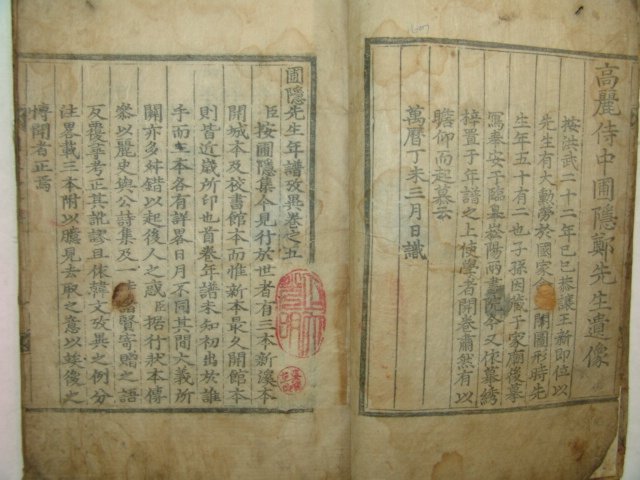 高麗侍中圃隱鄭先生遺像
按洪武二十二年己巳恭讓王新卽位以
先生有大勳勞於國家命 閣圖形時先
生年五十有二也子孫因藏于家廟後摹
寫奉安于臨臯崧陽兩書院今又依摹綉
梓置子年譜之上使學者開卷肅然有以
瞻仰而起慕云
萬曆丁未三月日識
圃隱先生年譜攷異卷之五
臣按圃隱集今見行於世者有三本新溪本
開城本及校書館本而惟新本最久開館本
則皆近歲所印也首卷年譜未知初出於誰
手而三本各有詳畧日月不同其間大義所
關亦多舛錯以起後人之惑臣據行狀本傳
叅以麗史與公詩集及一時諸賢寄贈之語
反覆叅考正其訛謬且依韓文攷異之例分
注畧載三本附以臆見去取之意以竢後之
博聞者正焉